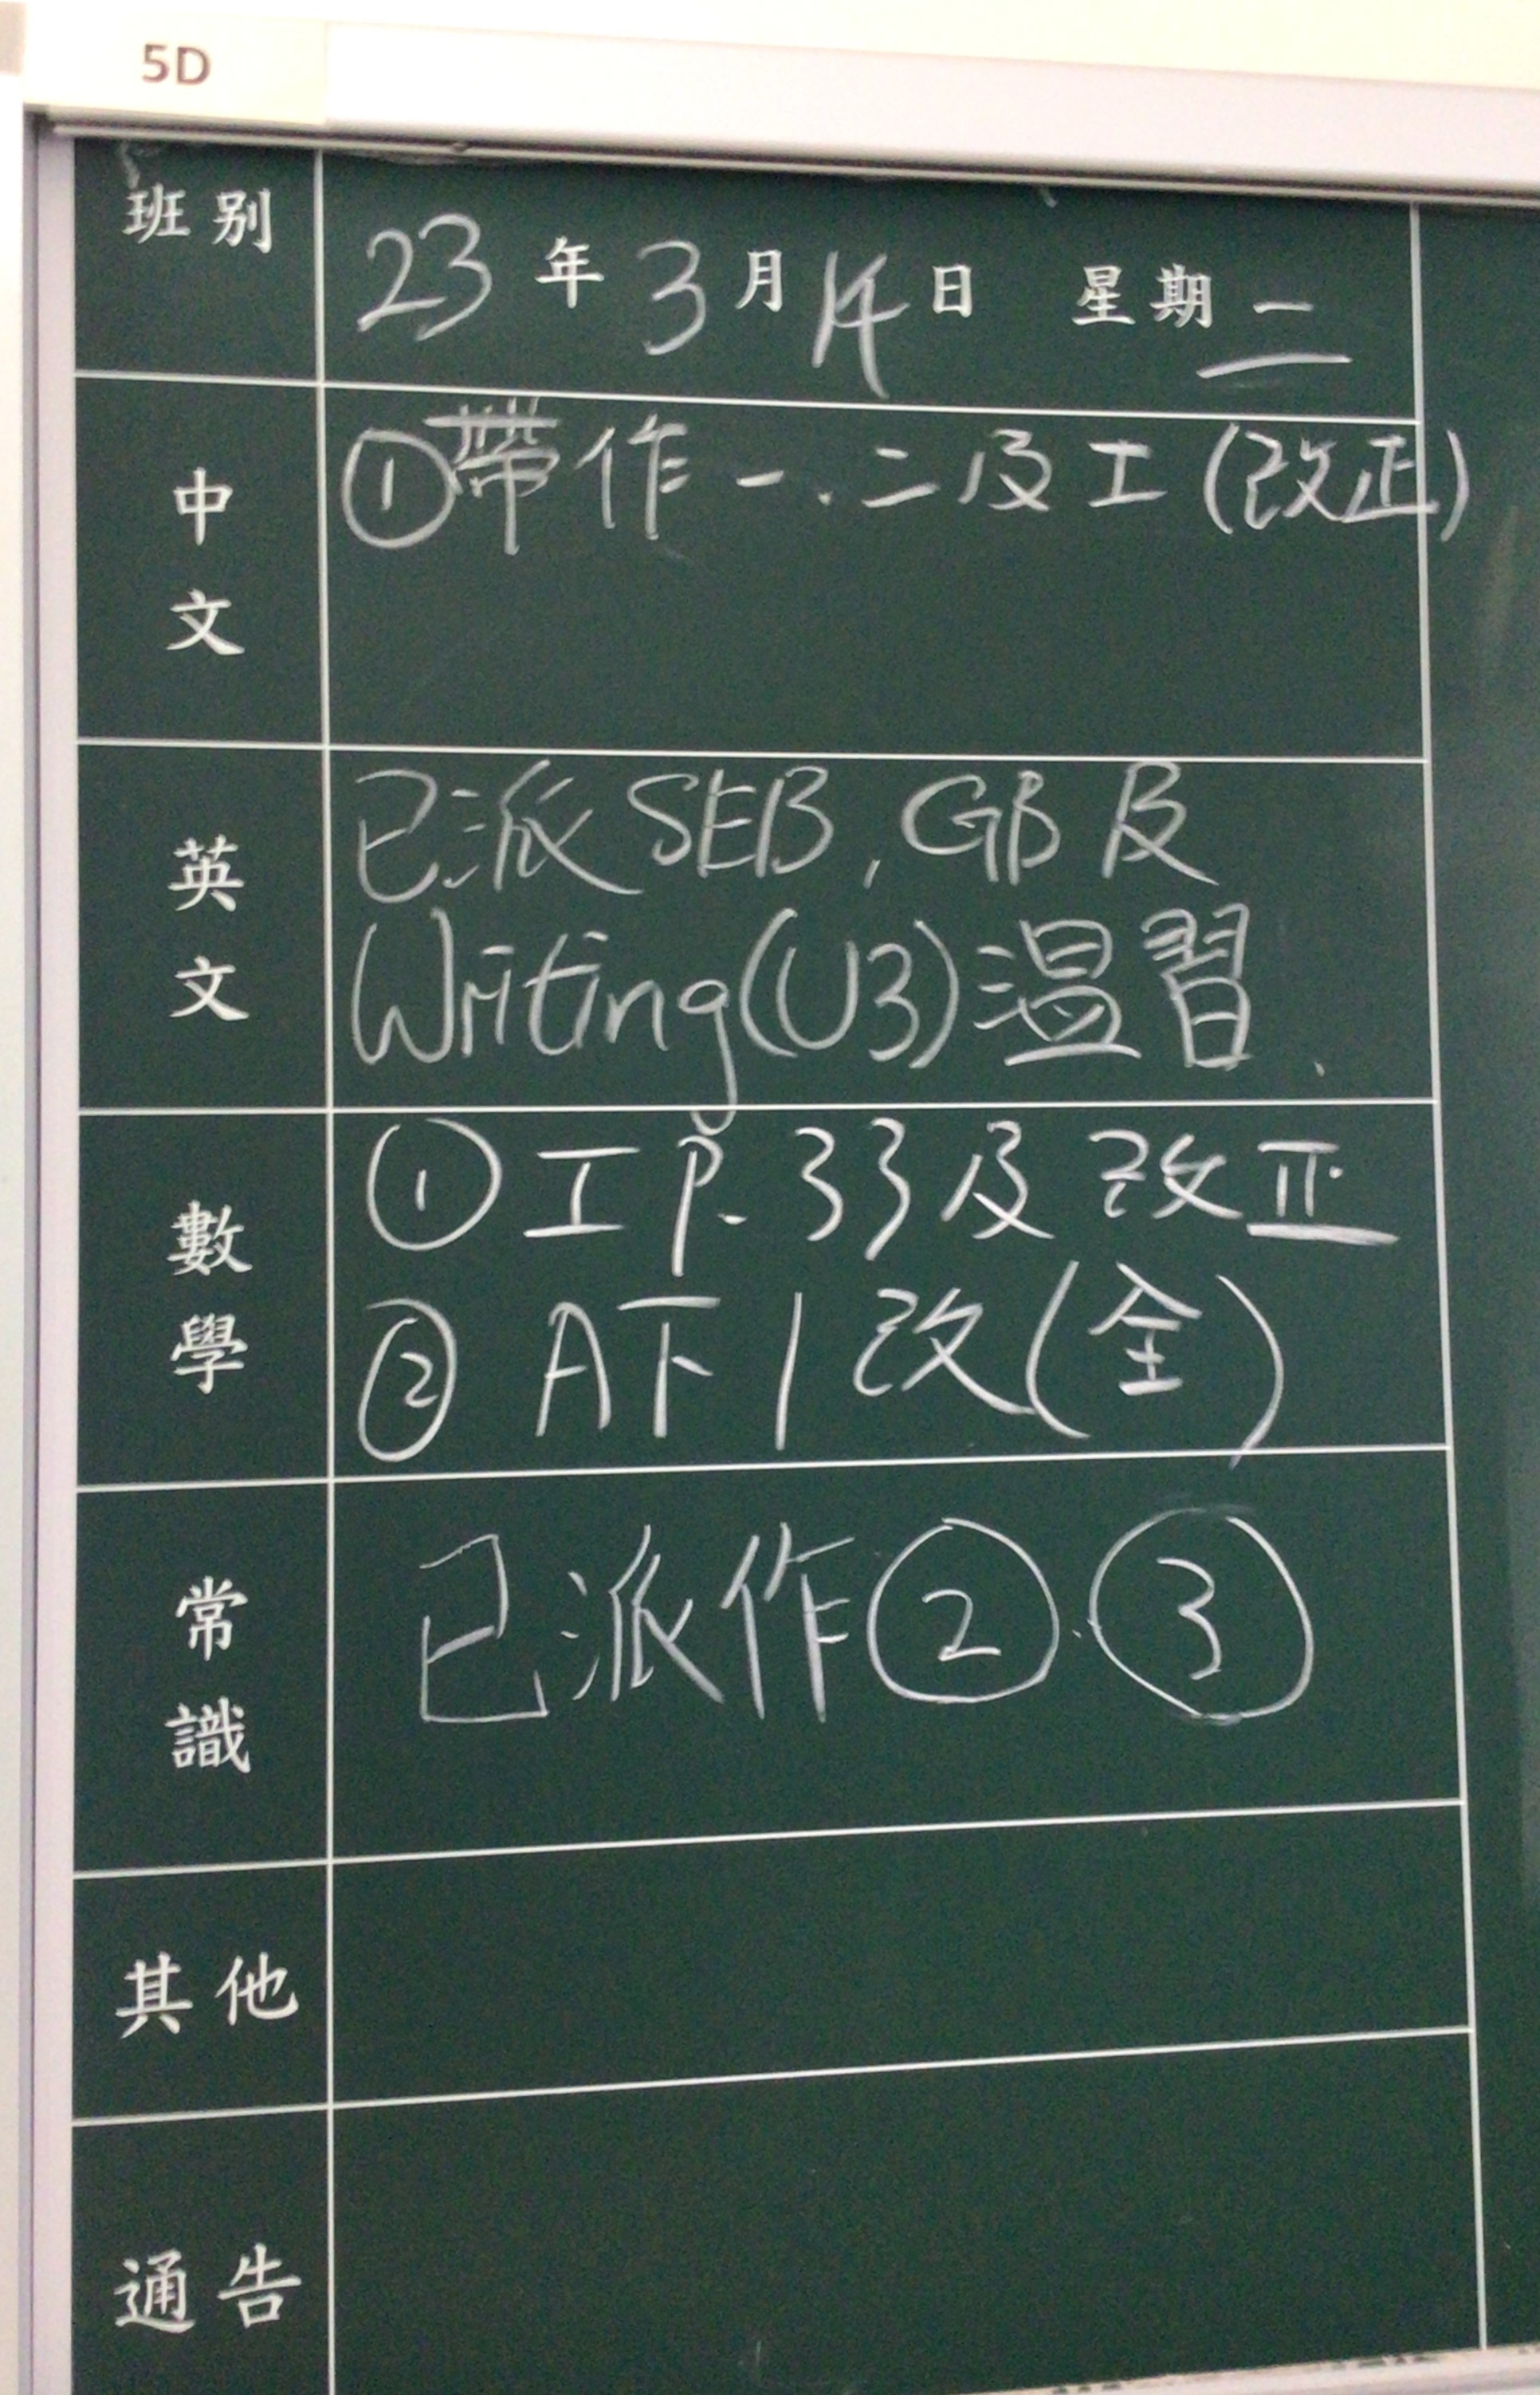 5D
班別 23年3月14日 星期二
中文 ①帶作一.二及工(改正)
英文 已派SEB,GB及
Writing(U3)温習.
數學 ①工P.33及改正
②A下1改(全)
常識 已派作②.③
其他
通告